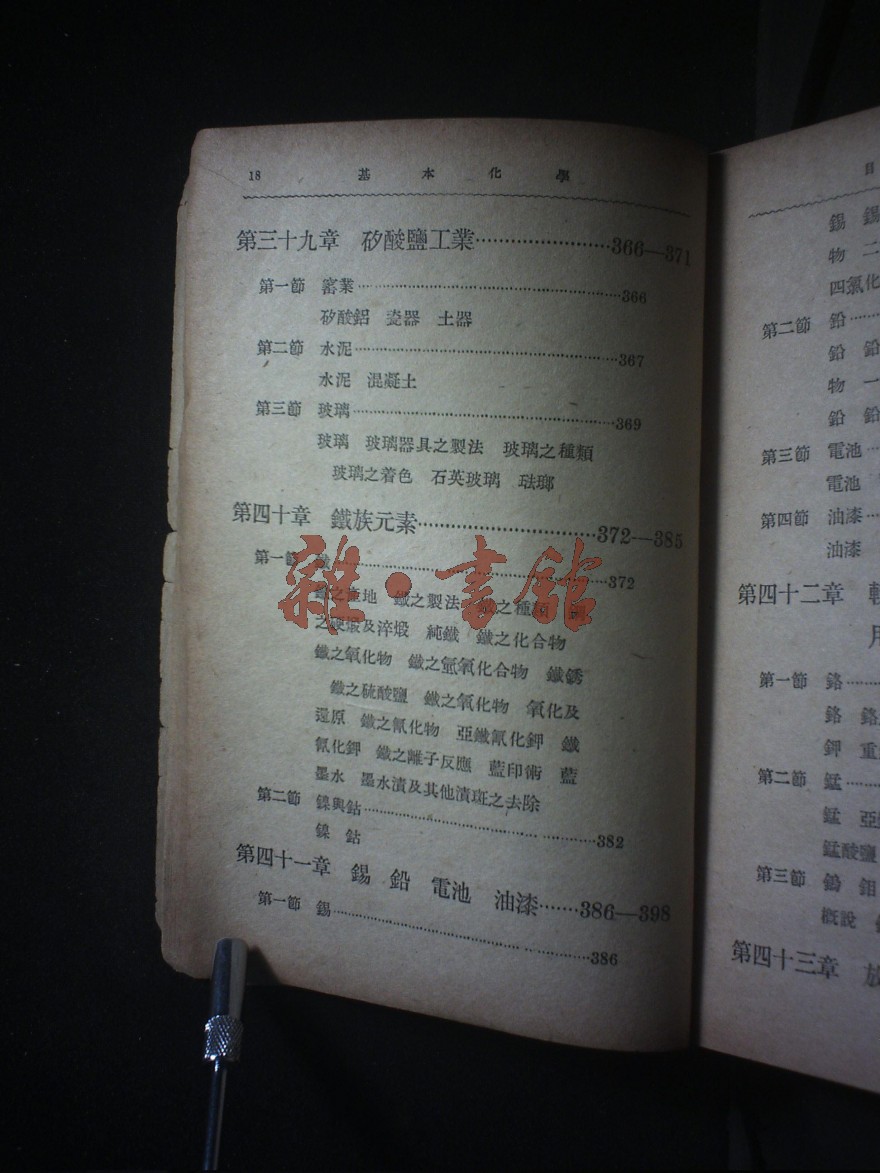 18 基本化學
第三十九章 矽酸鹽工業……………………366—371
第一節 窰業……………………366
矽酸鋁 瓷器 土器
第二節 水泥……………………367
水泥 混凝土
第三節 玻璃……………………369
玻璃 玻璃器具之製法 玻璃之種類
玻璃之着色 石英玻璃 琺瑯
第四十章 鐵族元素……………………372—385
第一節 鐵……………………372
鐵之產地 鐵之製法 鐵之種類
之硬煅及淬煅 純鐵 鐵之化合物
鐵之氧化物 鐵之氫氧化合物 鐵銹
鐵之硫酸鹽 鐵之氧化物 氧化及
還原 鐵之氰化物 亞鐵氰化鉀 鐵
氰化鉀 鐵之離子反應 藍印術 藍
墨水 墨水漬及其他漬斑之去除
第二節 鎳與鈷……………………382
鎳 鈷
第四十一章 錫 鉛 電池 油漆……386—398
第一節 錫……………………386
雜·書館
目
錫 錫
物 二
四氯化
第二節 鉛……
鉛 鉛
物 一
鉛 鉛
第三節 電池…
電池
第四節 油漆…
油漆
第四十二章
用
第一節 鉻……
鉻 鉻
鉀 重
第二節 錳……
錳 亞
錳酸鹽
第三節 鎢 鉬
概說
第四十三章 放